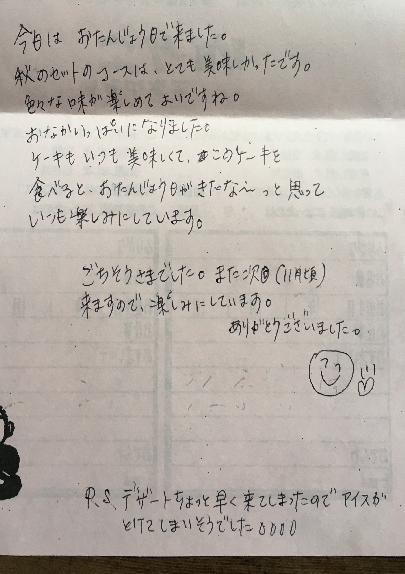 今日は おたんじょう日で来ました。
秋のセットのコースは、とても美味しかったです。
色々な味が楽しめてよいですね。
おなかいっぱいになりました。
ケーキもいつも美味しくて、このケーキを
食べると、おたんじょう日がきたな〜っと思って
いつも楽しみにしています。
ごちそうさまでした。また次回(11月頃)
来ますので、楽しみにしています。
ありがとうございました。
P.S. デザートちょっと早く来てしまったので アイスが
とけてしまいそうでした